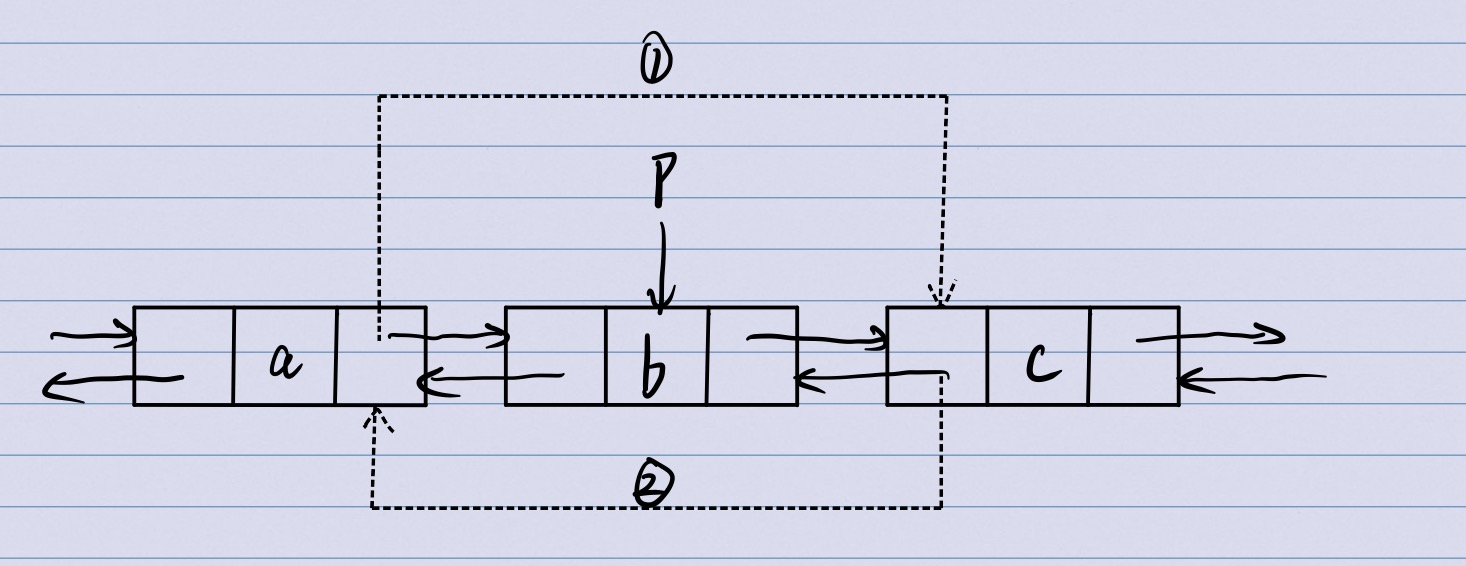 ①
P
a b c
②